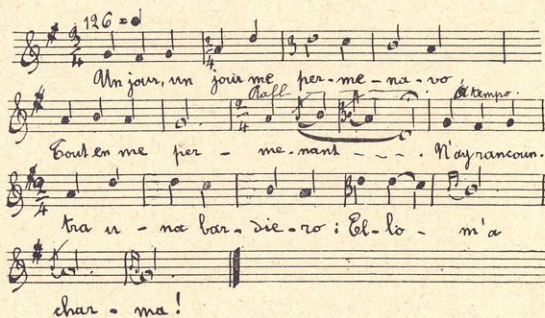 126 =
3 4 2 4 3
Un jour, un jour me per-me-na-vo
Rall. a tempo.
2 4 3
Tout en me per - me-nant - - - . N'ay rancoun-
2 4 3
tra u-na bar-die-ro : El-lo - m'a
char - ma !